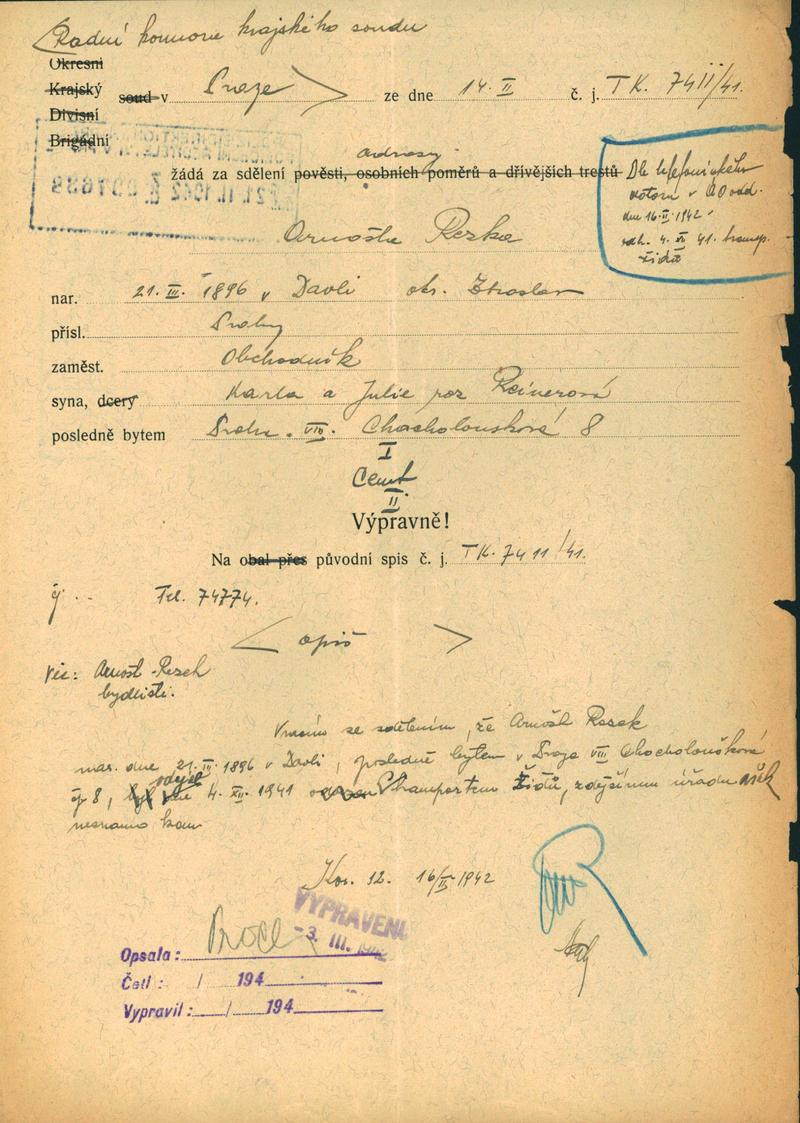 Radní komora krajského soudu
Okresní
Krajský soud v Praze ze dne 14. II č. j. TK. 7411/41.
Divisní
Brigádní
adresy
žádá za sdělení pověsti, osobních poměrů a dřívějších trestů
Dle telefonického
dotazu v
dne 16.II.1942
odh. 4. XII 41. transp.
židů
21. II. 1942
Arnošta Reska
nar. 21. III. 1896 v Davli okr. Zbraslav
přísl. Prahy
zaměst. Obchodník
syna, dcery Karla a Julie roz Reinerová
posledně bytem Praha. VIII. Chocholoušková 8
I
Cent
II.
Výpravně!
Na obal přes původní spis č. j. TK. 7411/41.
Tel. 74774.
opis
Věc: Arnošt Resek
bydliště.
Vracím se sdělením, že Arnošt Resek
nar. dne 21. III. 1896 v Davli, posledně bytem v Praze VIII Chocholoušková
odejel
čp 8, dne 4. XII. 1941 transportem Židů, zdejšímu úřadu však
neznámo kam
Kor. 12. 16/II 1942
VYPRAVENO
-3. III. 1942
Opsala:
Četl : / 194
Vypravil : / 194